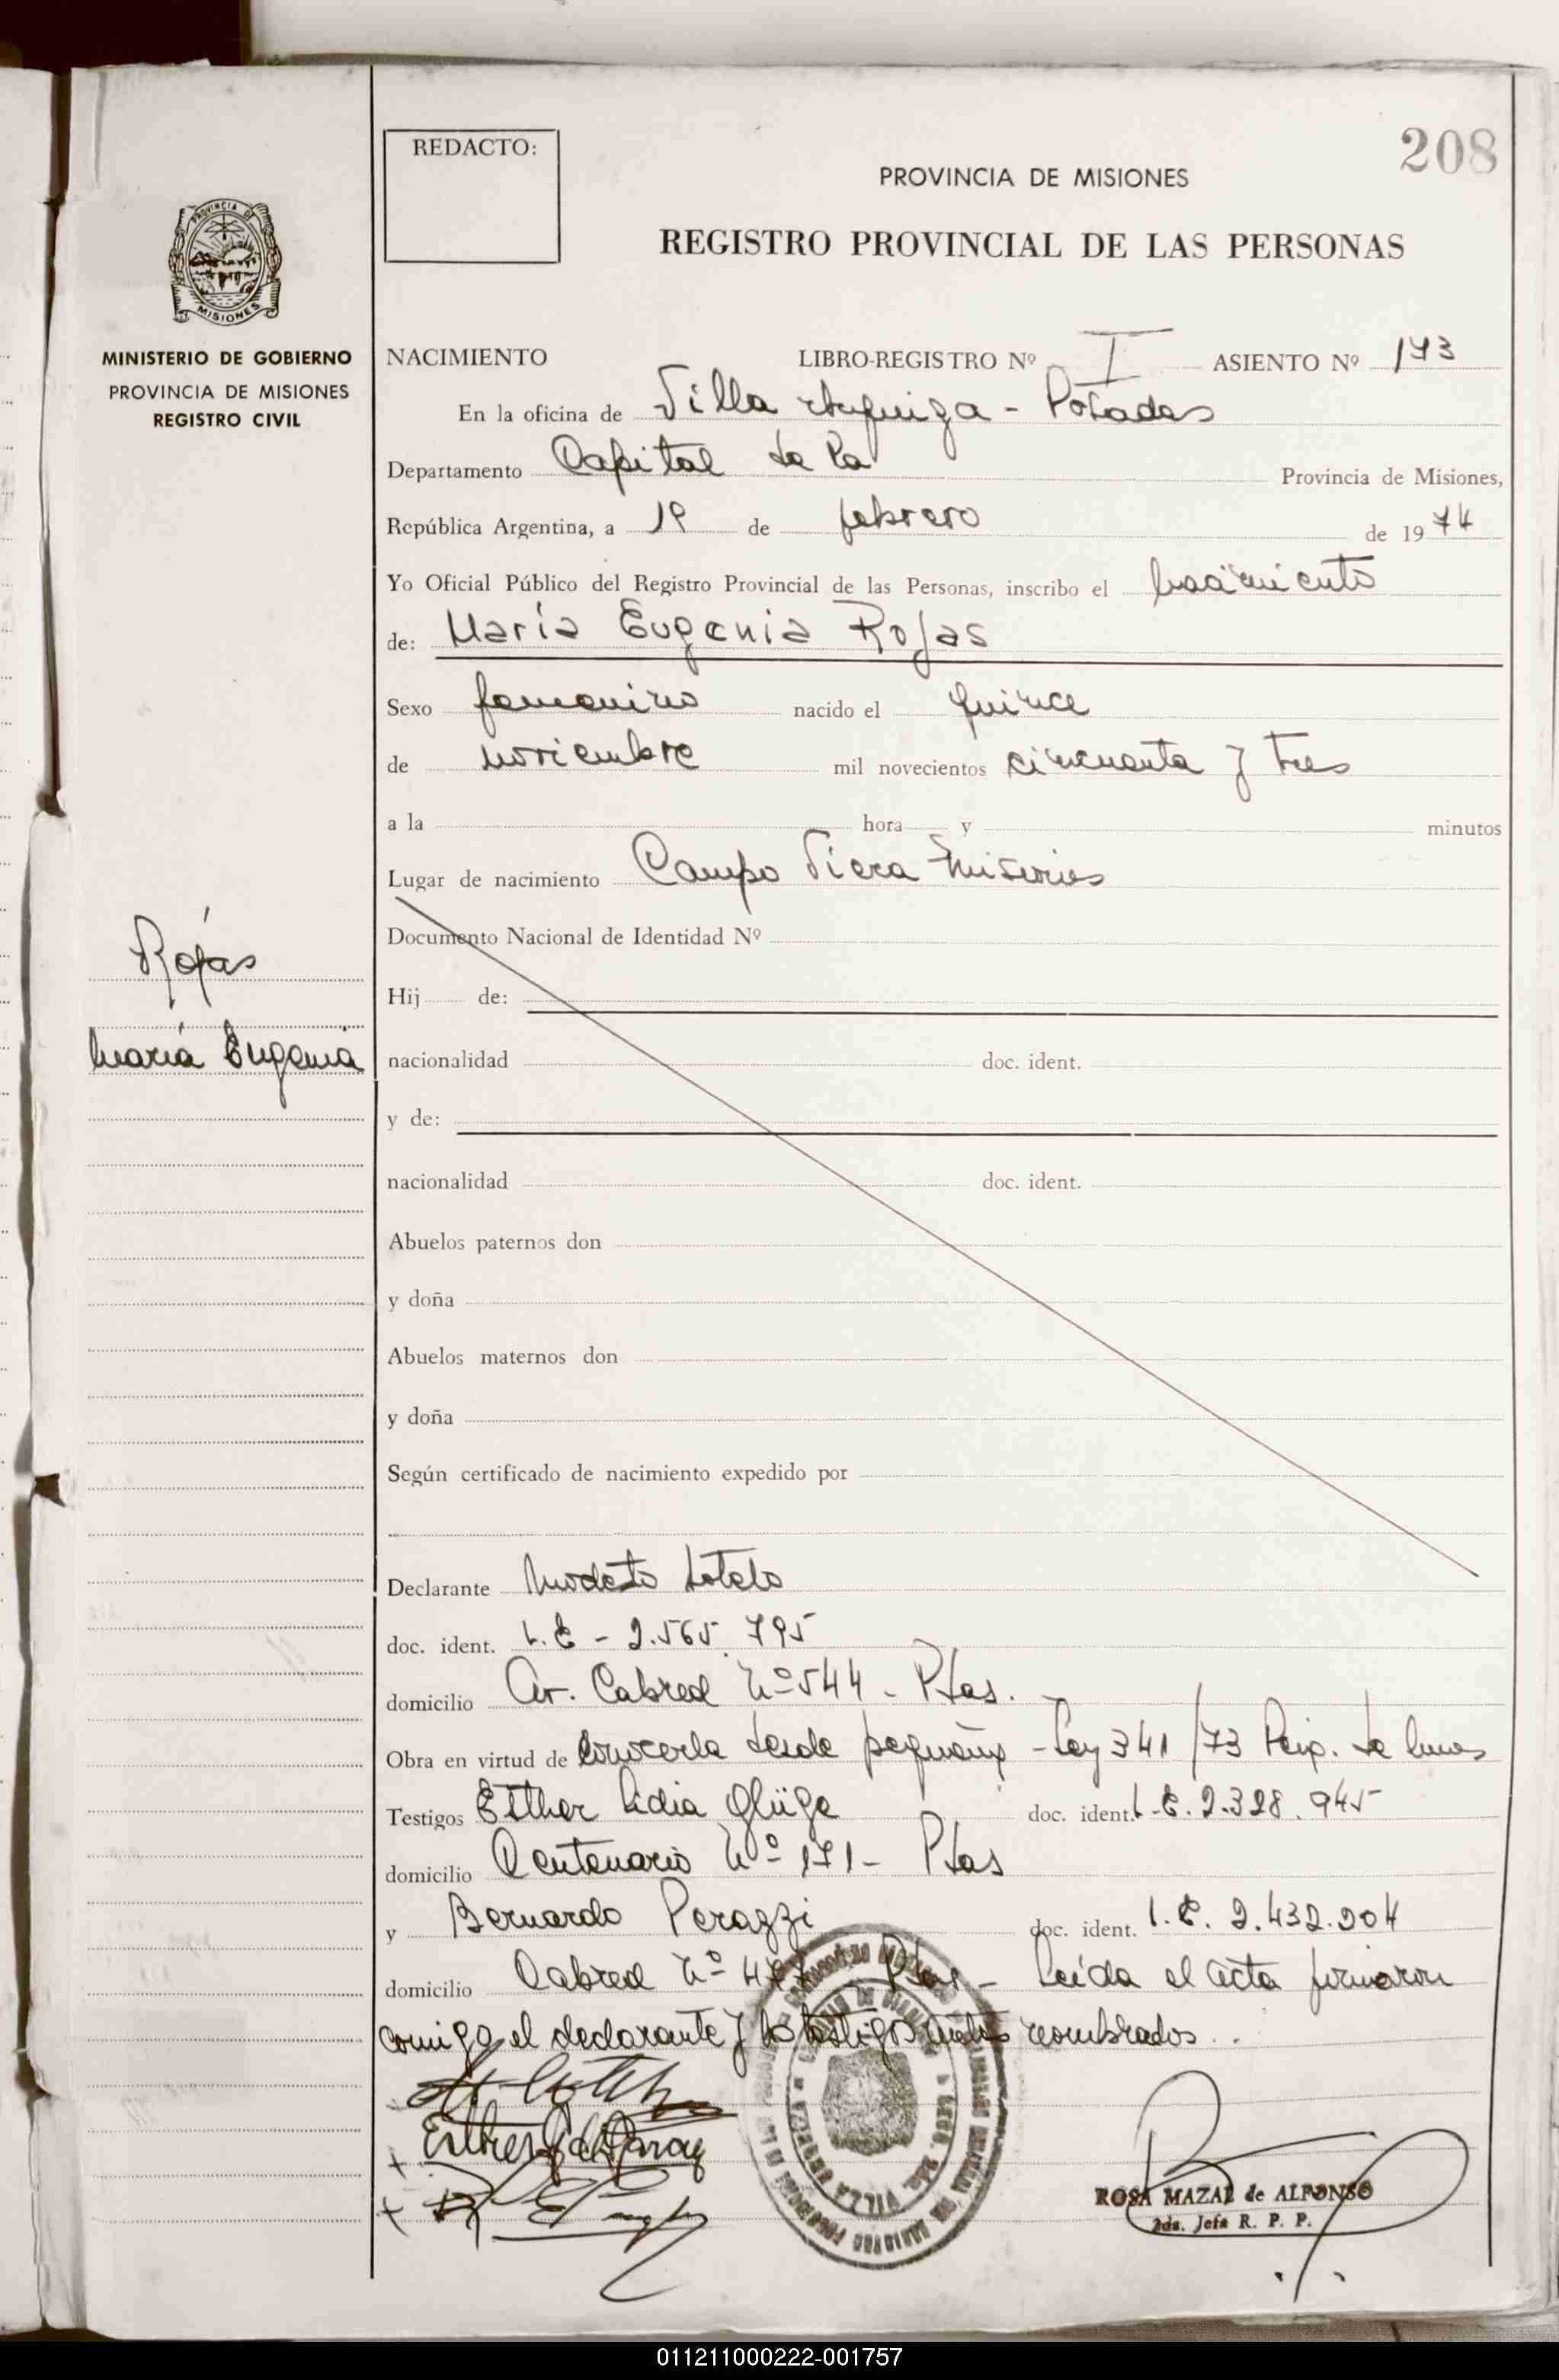 208
REDACTO:
PROVINCIA DE MISIONES
REGISTRO PROVINCIAL DE LAS PERSONAS
PROVINCIA DE
MISIONES
MINISTERIO DE GOBIERNO
PROVINCIA DE MISIONES
REGISTRO CIVIL
NACIMIENTO LIBRO-REGISTRO Nº I ASIENTO Nº 173
En la oficina de Villa Urquiza - Posadas
Departamento Capital de la Provincia de Misiones,
República Argentina, a 1º de febrero de 1974
Yo Oficial Público del Registro Provincial de las Personas, inscribo el nacimiento
de: María Eugenia Rojas
Sexo femenino nacido el quince
de noviembre mil novecientos cincuenta y tres
a la hora y minutos
Lugar de nacimiento Campo Viera Misiones
Documento Nacional de Identidad Nº
Rojas
María Eugenia
Hij de:
nacionalidad doc. ident.
y de:
nacionalidad doc. ident.
Abuelos paternos don
y doña
Abuelos maternos don
y doña
Según certificado de nacimiento expedido por
Declarante Modesto Sotelo
doc. ident. L.E - 2.565.795
domicilio Av. Cabred Nº 544 - Pdas.
Obra en virtud de conocerla desde pequeña - Ley 341/73
Testigos Esther Lidia doc. ident. L.E. 2.328.945
domicilio Centenario Nº 171 - Pdas
y Bernardo Perazzi doc. ident. L.E. 2.432.204
domicilio Cabred Nº Pdas - Leída el acta firmaron
conmigo el declarante y los testigos antes nombrados.
ROSA MAZAL de ALFONSO
2da. Jefa R. P. P.
011211000222-001757